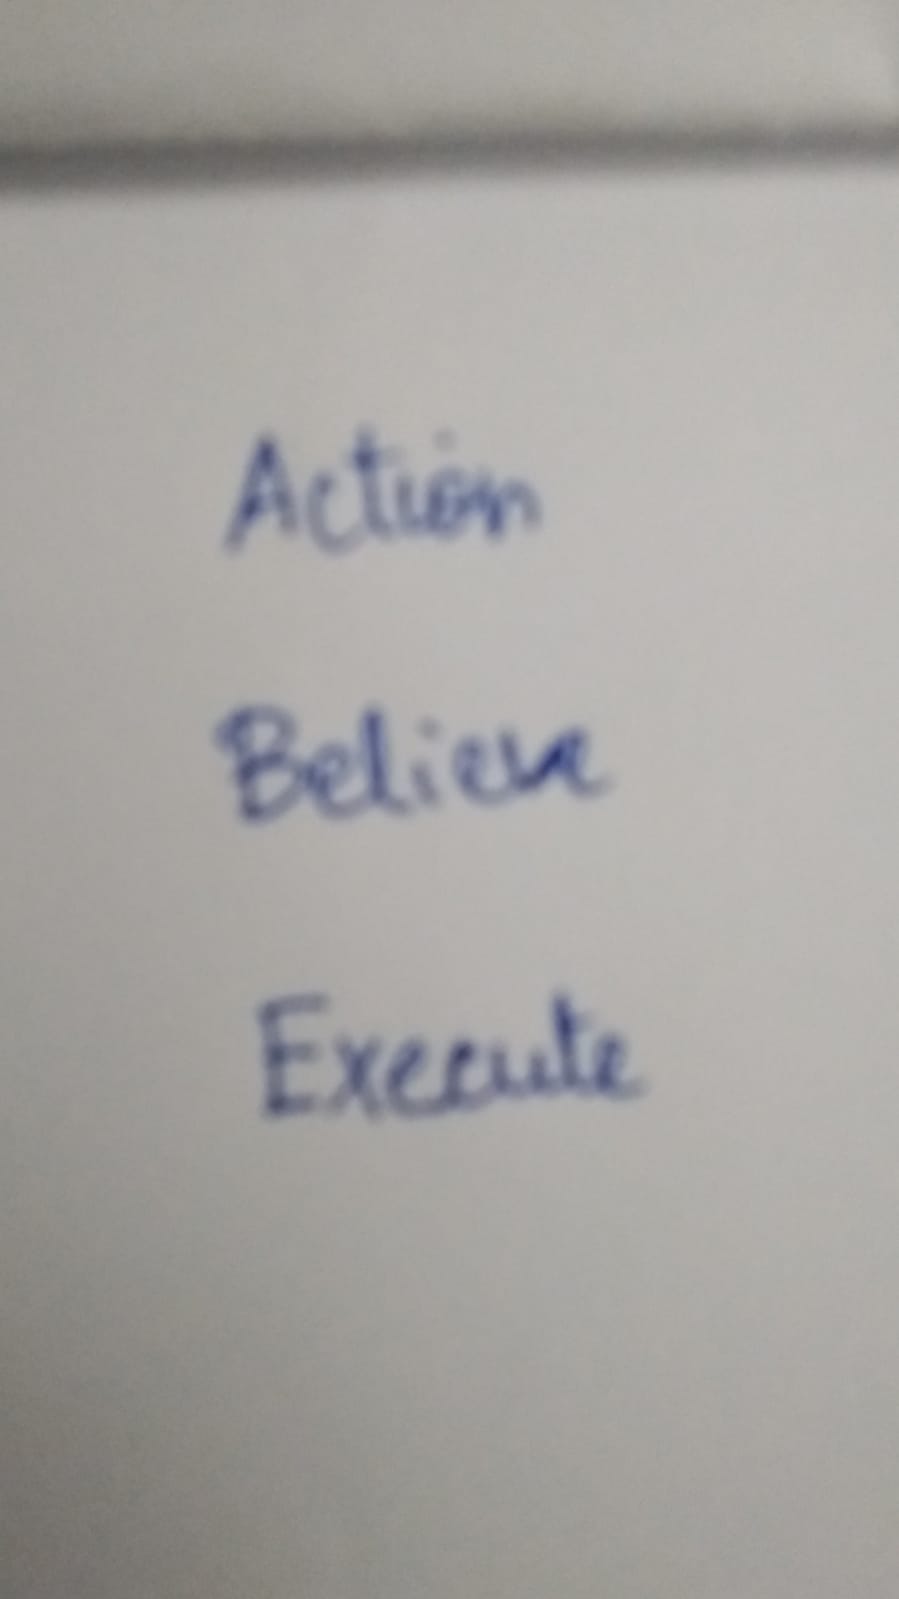 Action
Believe
Execute